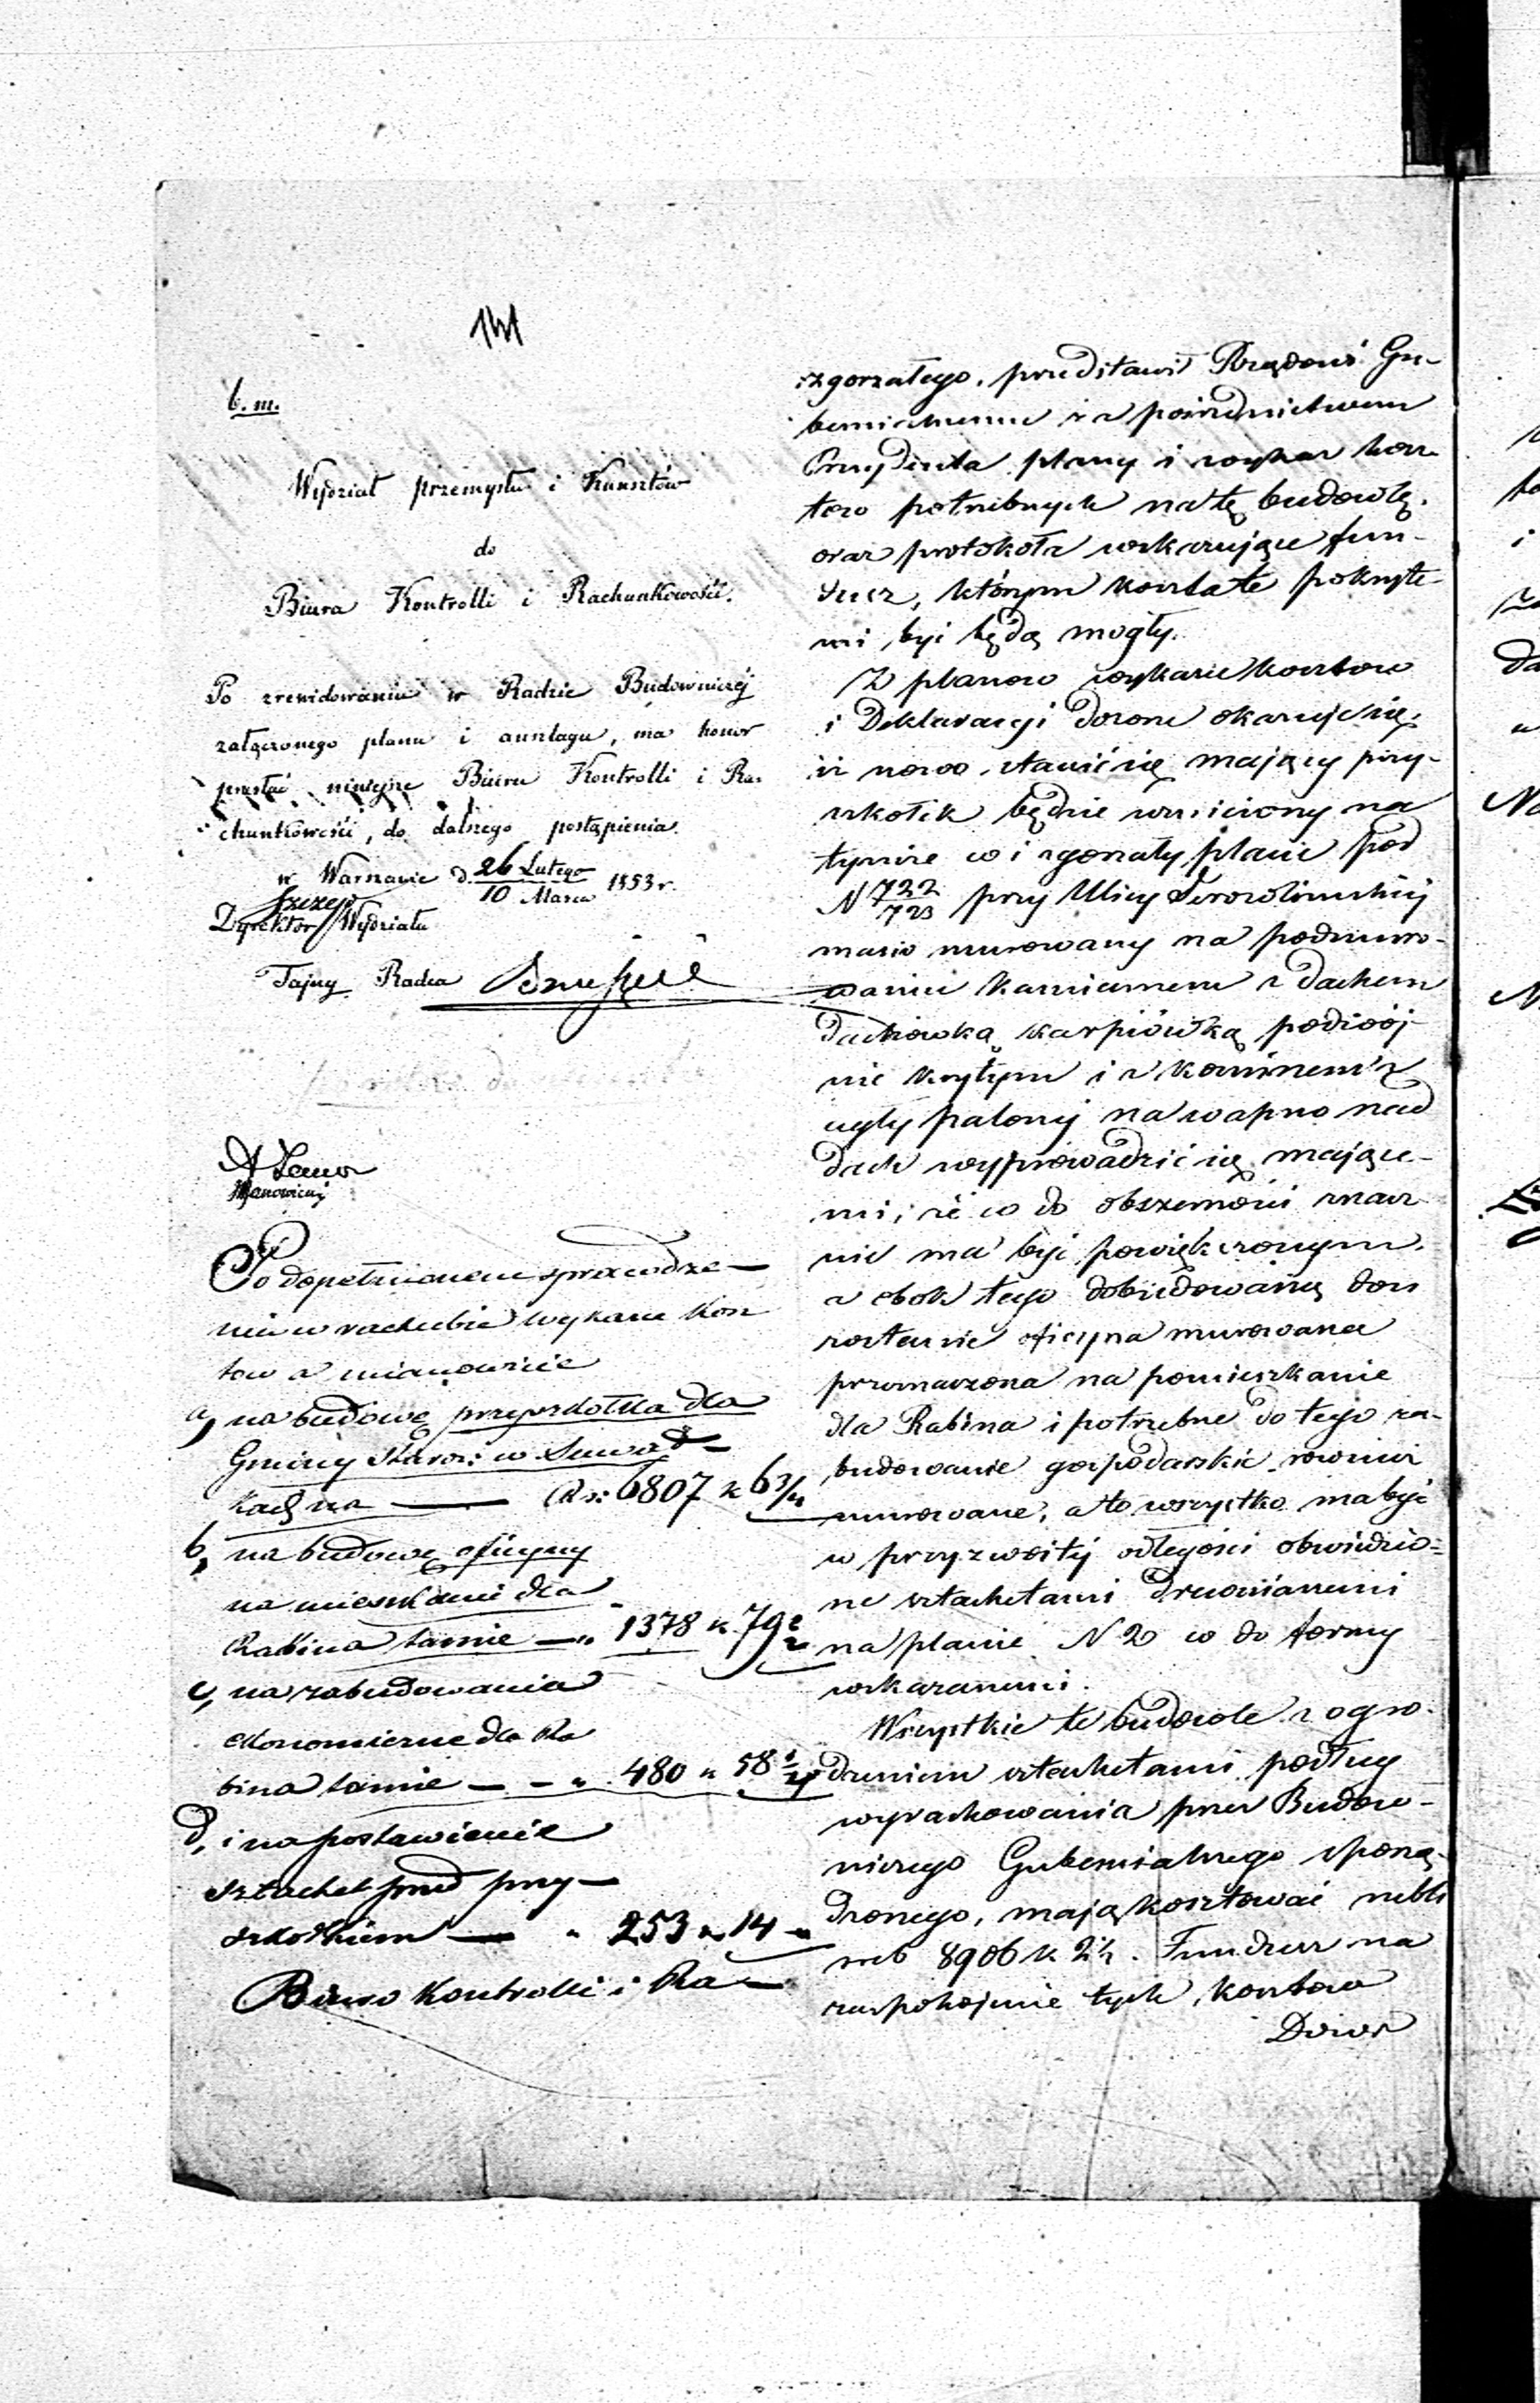 141
b. m.
Wydział przemysłu i Kunsztów
do
Biura Kontrolli i Rachunkowości.
Po zrewidowaniu w Radzie Budowniczéj
załączonego planu i anszlagu, ma honor
przesłać niniejsze Biuru Kontrolli i Ra-
chunkowości, do dalszego postąpienia.
w Warszawie d. 26 Lutego / 10 Marca 1853 r.
Dyrektor Wydziału
Tajny Radca
Po dopełnionem sprawdze-
niu w rachubie wykazu kosz
tow a mianowicie
a, na budowę przyszkołka dla
Gminy Staroz: w Suwał-
kach na — Rs: 6807 k 6 3/4
b, na budowę oficyny
na mieszkanie dla
Rabina tamże — " 1378 k. 79
c, na zabudowania
ekonomiczne dla Ra
bina tamże — - " 480 " 58 1/4
d, i na postawienie
sztachet przed przy-
szkołkiem — " 253 " 14 "
Biuro Kontrolli i Ra-
zgorzałego, przedstawił Rządowi Gu-
bernialnemu za pośrednictwem
Prezydenta plany i wykaz kosz
tow potrzebnych na tę budowlę,
oraz protokoła wskazujące fun-
dusz, którym koszta te pokryte-
mi być będą mogły.
Z planow wykazu kosztow
i Deklaracyi Dozoru okazuje się,
iż nowo stawić się mający przy-
szkołek będzie wzniesiony na
tymże co i zgorzały placu pod
N 722/723 przy Ulicy Jerozolimskiej
masiv murowany na podmuro-
waniu kamiennem z dachem
dachowką karpiówką podwój-
nie krytym i z kominem z
cegły palonej na wapno nad
dach wyprowadzić się mające-
mi, że co do obszerności znacz
nie ma być powiększonym.
a obok tego dobudowaną don
zostanie oficyna murowana
przeznaczona na pomieszkanie
dla Rabina i potrzebne do tego za-
budowanie gospodarskie rownież
murowane, a to wszystko ma być
w przyzwoitej odległości obwiedzio-
ne sztachetami drewnianemi
na planie N 2 co do formy
wskazanemi.
Wszystkie te budowle z ogro-
dzeniem sztachetami podług
wyrachowania przez Budow-
niczego Gubernialnego sporzą-
dzonego, mają kosztować rubli
sreb 8906 k 2 1/2. Fundusz na
zaspokojenie tych kosztow
Dozor